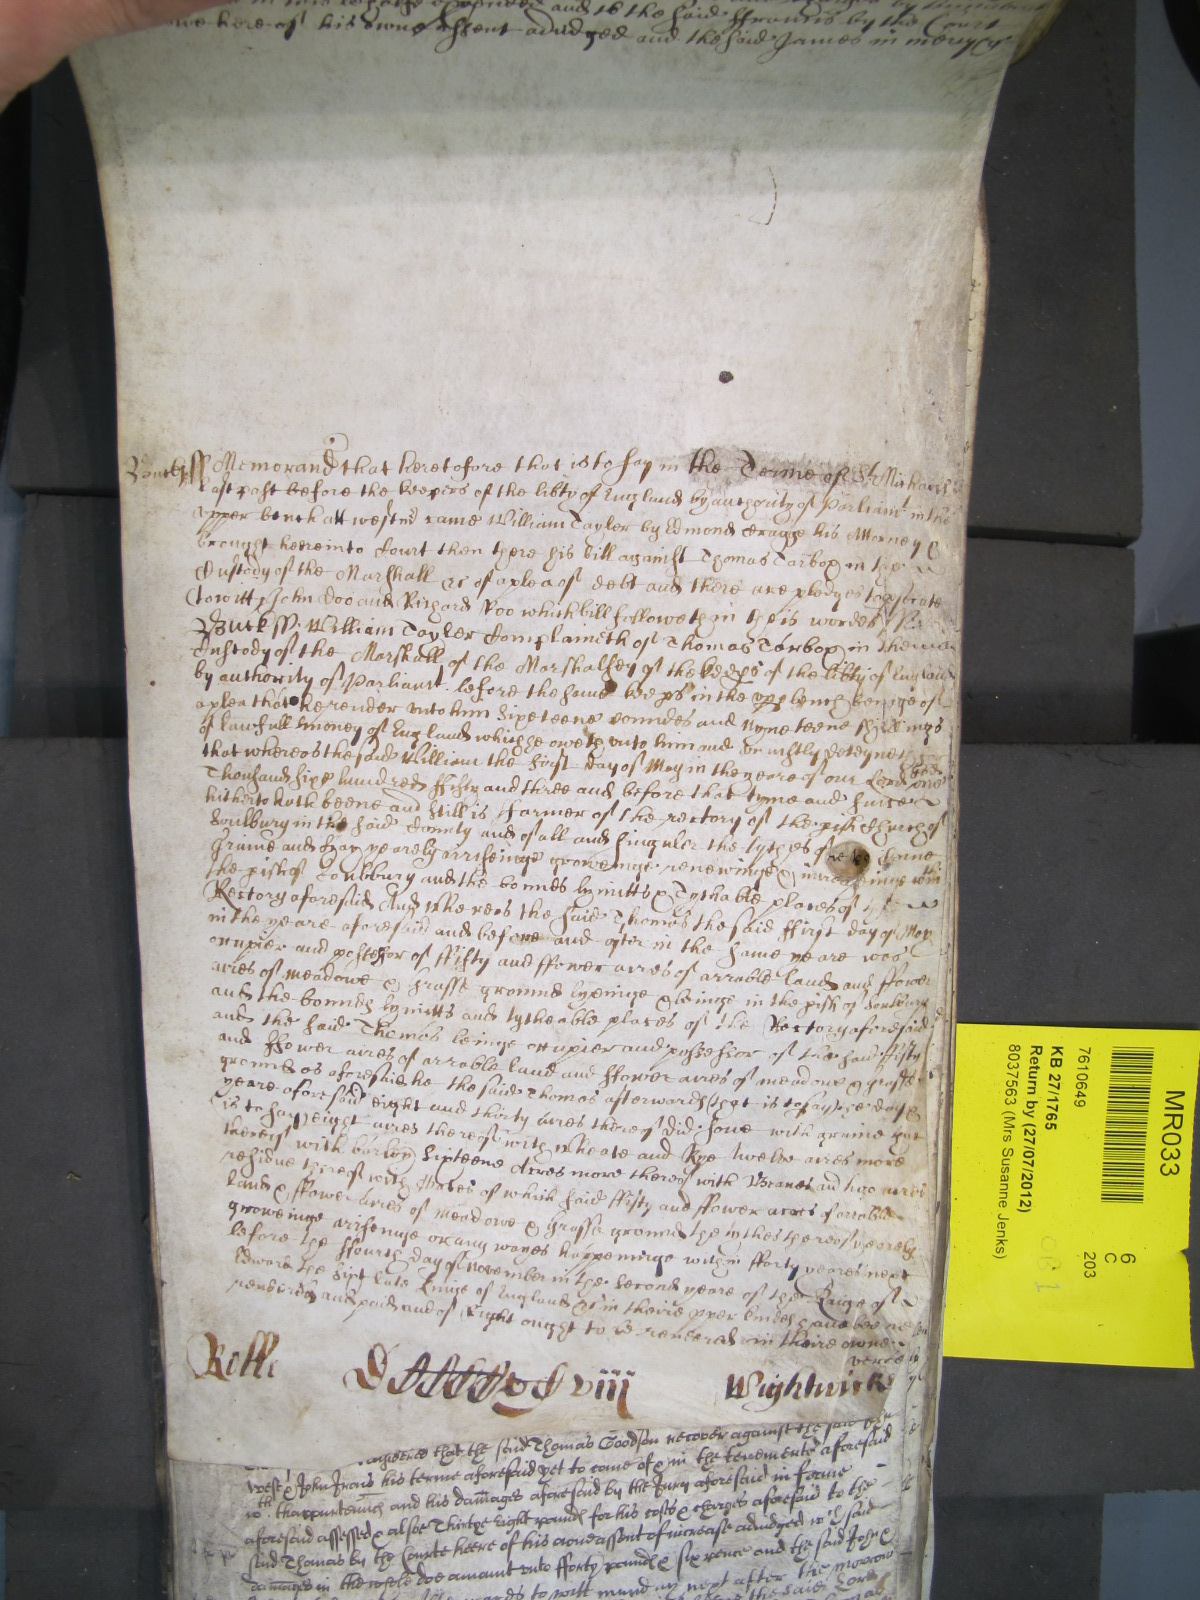 and to the said ffrancis by the Court
here of his owne assent adiudged and the said James in mercy &c
Buck ss Memorand that heretofore that is to say in the Terme of St Michaell
last past before the keepers of the libty of England by authority of Parliamt in the
upper bench att westm came William Tayler by Edmond Bragge his Attorney &
brought here into Court then there his bill against Thomas Tarbox in the
Custody of the Marshall &c of a plea of debt and there are pledges to prosecute
to witt John Doo and Richard Roo which bill followeth in theis wordes ss
Buck ss William Tayler Complaineth of Thomas Tarbox in the
Custody of the Marshall of the Marshalsey of the keeps of the libty of England
by authority of Parliamt before the same keeps in the upp bench beinge of
a plea that he render unto him Sixteene poundes and Nyneteene shillings
of lawfull money of England which he oweth unto him and uniustly deteyneth
that whereas the said William the first day of May in the yeare of our Lord God one
Thousand sixe hundred fifty and three and before that tyme and since
hitherto hath beene and still is ffarmer of the rectory of the pish Church of
Soulbury in the said County and of all and singuler the tythes of Corne
Graine and Hay yearely ariseinge groweinge renewinge & increasinge wthin
the pish of Soulbury and the bounds lymitts & Tythable places of the
Rectory aforesaid And whereas the said Thomas the said ffirst day of May
in the yeare aforesaid and before and after in the same yeare was
occupier and possessor of ffifty and ffower acres of arrable land and ffower
acres of meadowe & grasse ground lyeinge & beinge in the pish of Soulbury
and the bounds lymitts and tytheable places of the Rectory aforesaid
and the said Thomas beinge occupier and possessor of the said ffifty
and ffower acres of arrable land and ffower acres of meadowe & grasse
ground as aforesaid he the said Thomas afterwards that is to say the day &
yeare aforesaid eight and thirty acres thereof did sowe with graine that
is to say eight acres thereof with wheate and Rye twelve acres more
thereof with barley Sixteene Acres more thereof with Beanes and two acres
residue thereof with Oates of which said ffifty and ffower acres of arrable
land & ffower acres of meadowe & Grasse ground the tithes thereof yearely
groweinge ariseinge or any wayes happeninge within fforty yeares next
before the ffourth day of November in the Second yeare of the Raigne of
Edward the Sixt late Kinge of England &c in theire pper kindes have bee
rendred and paid and of Right ought to be rendered in theire owne
Rolle viii Wightwick
considered that the said Thomas Goodson recover against the said John
West & John his terme aforesaid yet to come of & in the tenements aforesaid
wth thappurtennces and his damages aforesaid by the Jury aforesaid in forme
aforesaid assessed & alsoe Thirtye Eight pounds for his costs & charges aforesaid to the
said Thomas by the Courte heere of his owne assent of increase adiudged wch said
damages in the whole doe amount unto fforty pounds & six pence and the said John &
to witt munday next after the morrow
MR033
6
C
203
7610649
KB 27/1765
Return by (27/07/2012)
8037563 (Mrs Susanne Jenks)